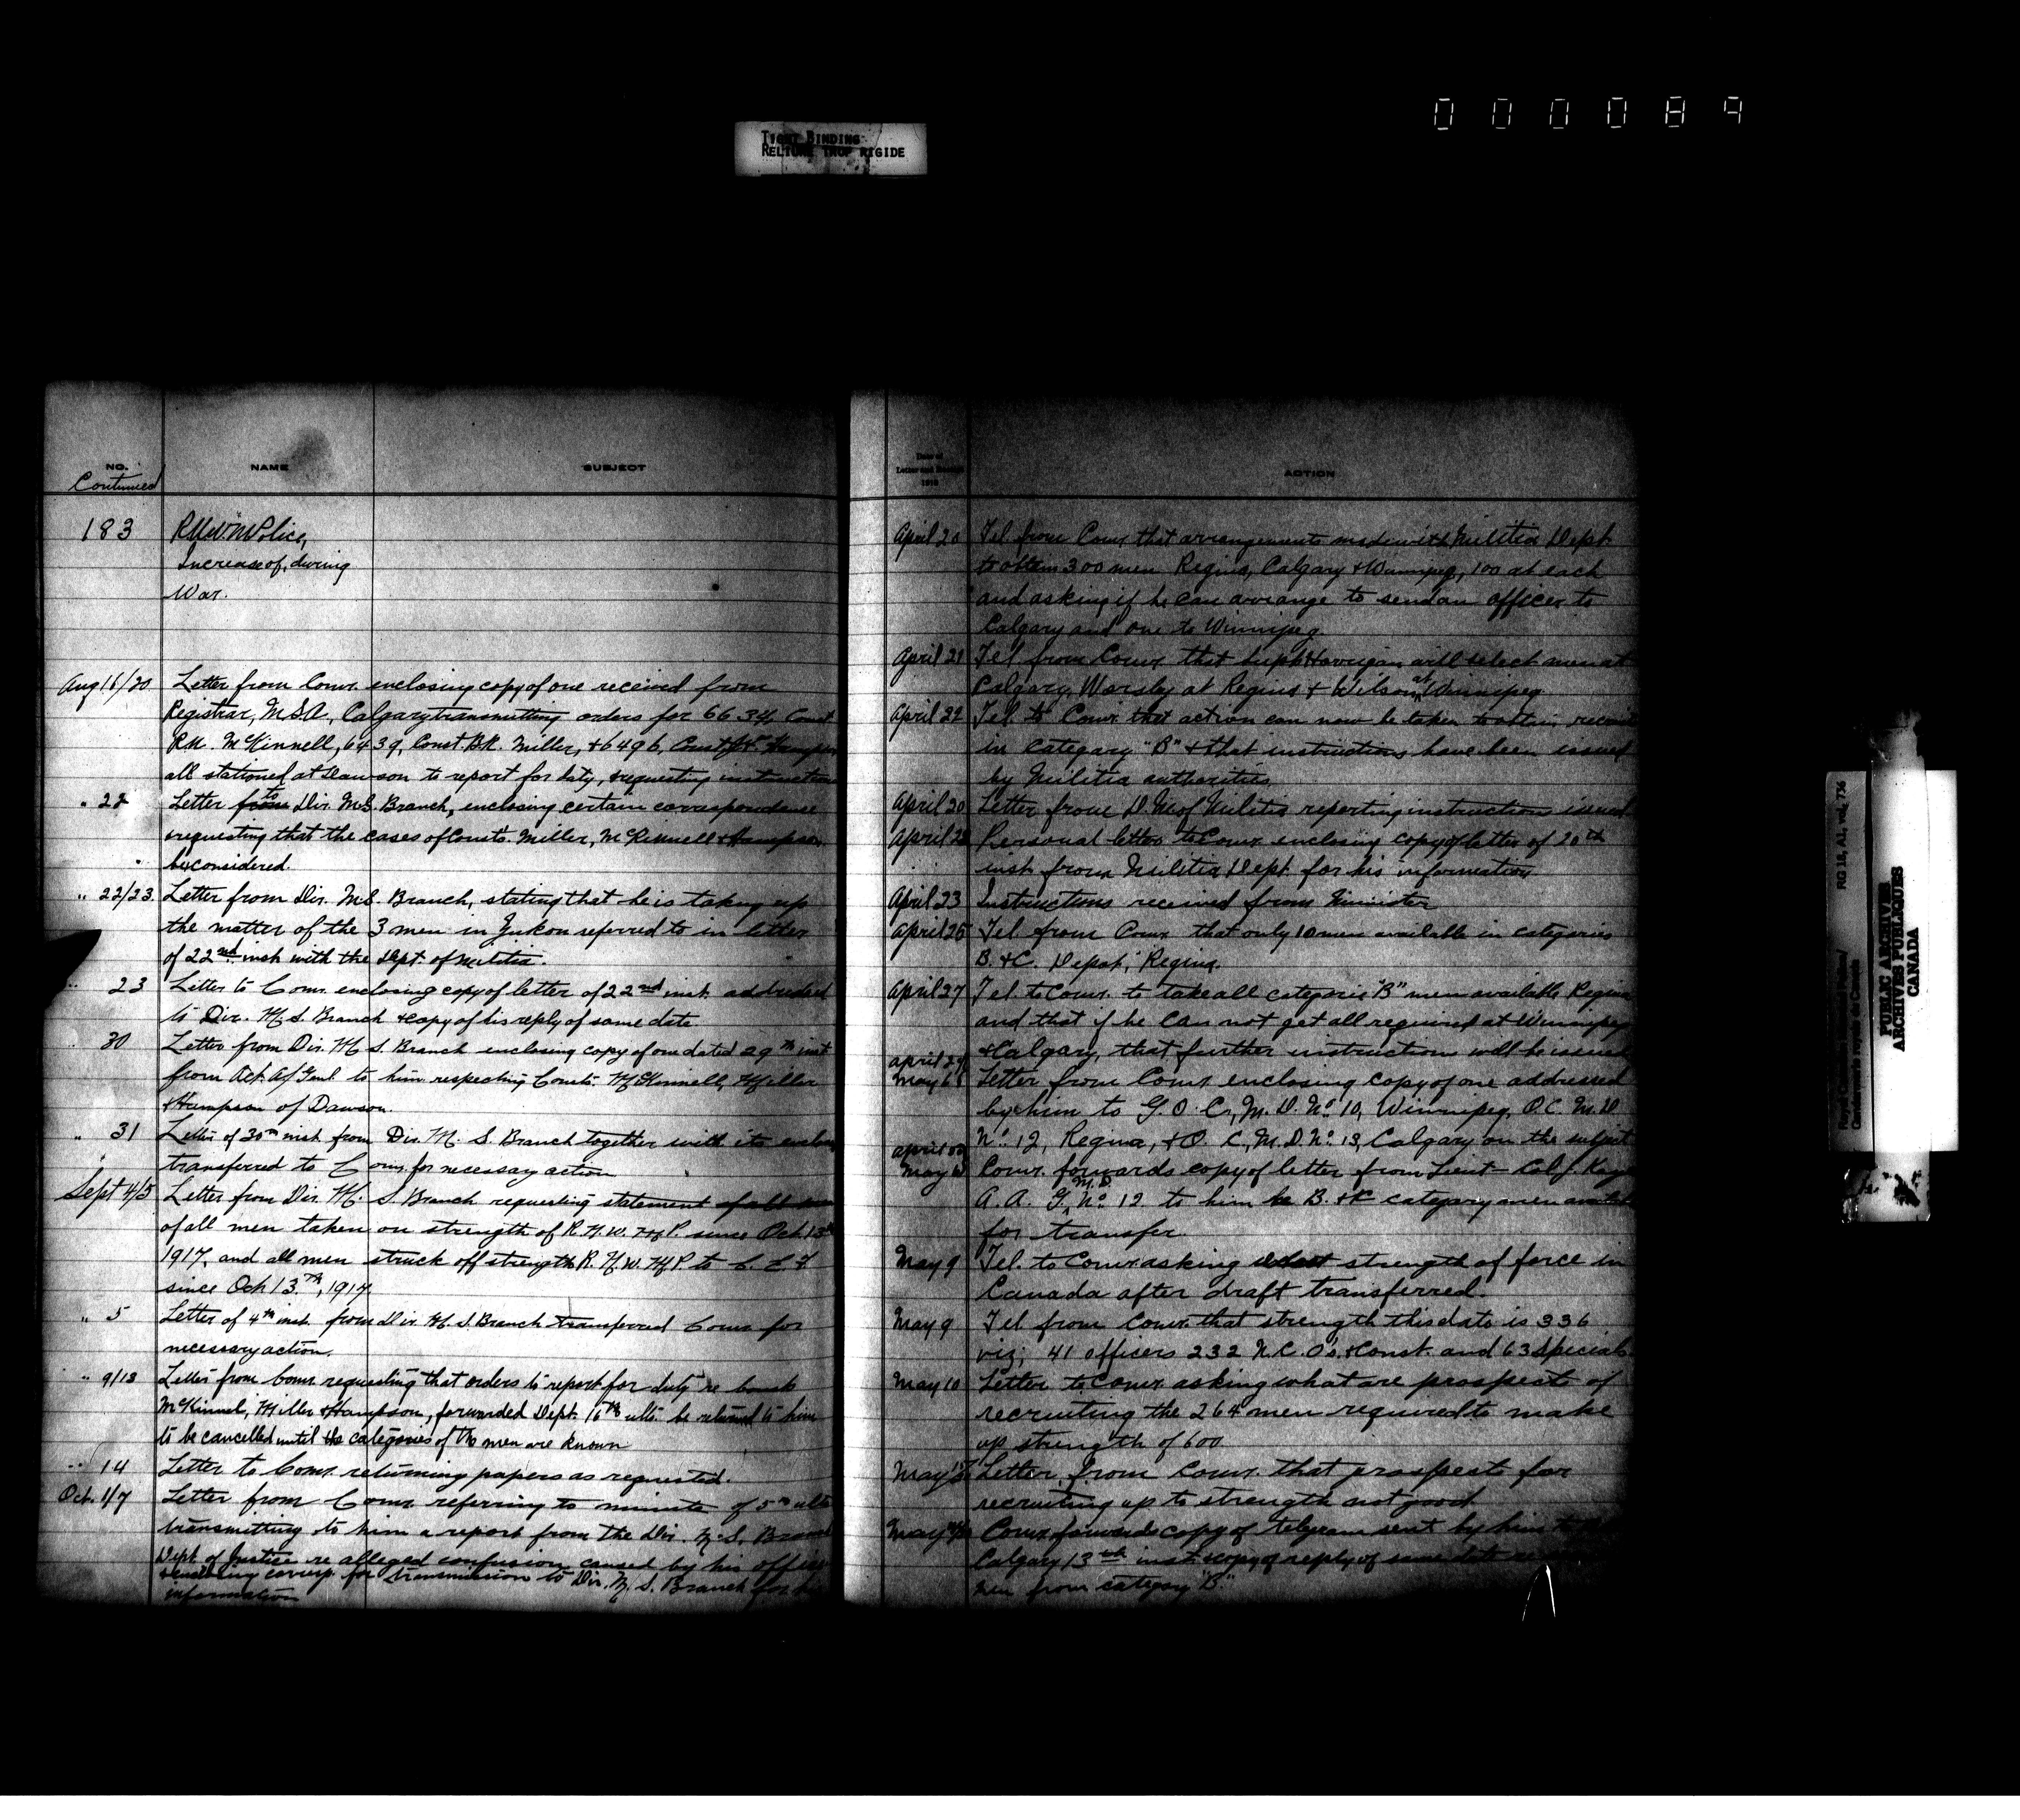 000089
TIGHT BINDING
RELIURE TROP RIGIDE
NO.
NAME
SUBJECT
Continued
183
R.N.W.M Police,
Increase of, during
War.
Aug 16/20 Letter from Comr. enclosing copy of one received from
Registrar, M.S.A, Calgary transmitting orders for 6634, Const
R.M. McKinnell, 6439, Const. B.R. Miller, & 6496, Const.
all stationed at Dawson to report for duty, & requesting instructions
" 22 Letter from to Dir. M.S. Branch, enclosing certain correspondence
& requesting that the cases of Consts. Miller, McKinnell & Hampson
be considered.
" 22/23 Letter from Dir. M.S. Branch, stating that he is taking up
the matter of the 3 men in Yukon referred to in letter
of 22nd inst. with the Dept. of Militia.
" 23 Letter to Comr. enclosing copy of letter of 22nd inst. addressed
to Dir. M. S. Branch & copy of his reply of same date
" 30 Letter from Dir. M. S. Branch enclosing copy of one dated 29th inst
from Act. A/ Genl to him respecting Consts. McKinnell, Miller
& Hampson of Dawson.
" 31 Letter of 30th inst. from Dir. M. S. Branch together with its
transferred to Comr. for necessary action
Sept 4/5 Letter from Dir. M. S. Branch requesting statement of all
of all men taken on strength of R.N.W.M.P. since Oct 13th
1917, and all men struck off strength R.N.W.M.P to C.E.F
since Oct 13th, 1917.
" 5 Letter of 4th inst. from Dir. M. S. Branch transferred Comr for
necessary action.
" 9/13 Letter from Comr. requesting that orders to report for duty re Consts
McKinnel, Miller & Hampson, forwarded Dept. 16th ulto. be returned to him
to be cancelled until the categories of the men are known
" 14 Letter to Comr. returning papers as requested.
Oct. 1/7 Letter from Comr referring to minute of 5th ulto
transmitting to him a report from the Dir. M. S. Branch
Dept of Justice re alleged confusion caused by his office
sending corresp. for transmission to Dir. M. S. Branch for his
information
Date of
Letter and Receipt
1918
ACTION
April 20 Tel. from Comr. that arrangements made with Militia Dept.
to obtain 300 men Regina, Calgary & Winnipeg, 100 at each
and asking if he can arrange to send an officer to
Calgary and one to Winnipeg.
April 21 Tel. from Comr. that Supt Horrigan will select men at
Calgary, Worsley at Regina & Wilson at Winnipeg
April 22 Tel. to Comr. that action can now be taken to obtain recruits
in category "B" & that instructions have been issued
by Militia authorities
April 20 Letter from D.M. of Militia reporting instruction issued
April 23 Personal letter to Comr. enclosing copy of letter of 20th
inst. from Militia Dept. for his information
April 23 Instructions received from Minister
April 25 Tel. from Comr. that only 10 men available in categories
B. & C. Depot, Regina.
April 27 Tel. to Comr. to take all categorie "B" men available Regina
and that if he can not get all required at Winnipeg
& Calgary, that further instruction will be issued
April 29 May 6 Letter from Comr. enclosing copy of one addressed
by him to G.O.C., M.D. No. 10, Winnipeg, O.C. M.D
No. 12, Regina, & O.C, M.D. No. 13, Calgary on the subject
April 30 May 6 Comr. forwards copy of letter from Lieut-Col J. Kaye
A.A.G, M.D. No. 12 to him re B. & C category men available
for transfer.
May 9 Tel. to Comr. asking what strength of force in
Canada after draft transferred.
May 9 Tel. from Comr. that strength this date is 336
viz; 41 officers 232 N.C.O's. & Const. and 63 Specials
May 10 Letter to Comr. asking what are prospects of
recruiting the 264 men required to make
up strength of 600.
May Letter from Comr. that prospects for
recruiting up to strength not good
May Comr. forwards copy of telegram sent by him to
Calgary 13th inst. & copy of reply of same date
men from category "B"
Royal Canadian Mounted Police/
Gendarmerie royale du Canada
RG 18, A1, vol. 736
PUBLIC ARCHIVES
ARCHIVES PUBLIQUES
CANADA